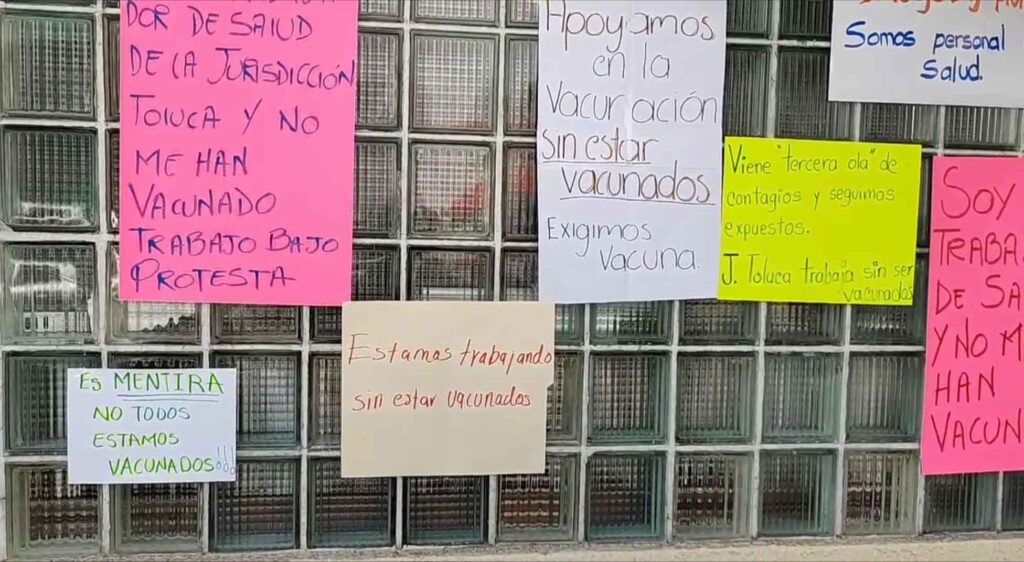 DOR DE SALUD
DE LA JURISDICCIÓN
TOLUCA Y NO
ME HAN
VACUNADO
TRABAJO BAJO
PROTESTA
Apoyamos
en la
vacunación
sin estar
vacunados
Exigimos
vacuna.
Somos personal
Salud.
Viene "tercera ola" de
contagios y seguimos
expuestos.
J. Toluca trabaja sin ser
vacunados
SOY
TRABA
DE SA
Y NO M
HAN
VACUN
Es MENTIRA
NO TODOS
ESTAMOS
VACUNADOS!!!
Estamos trabajando
sin estar vacunados